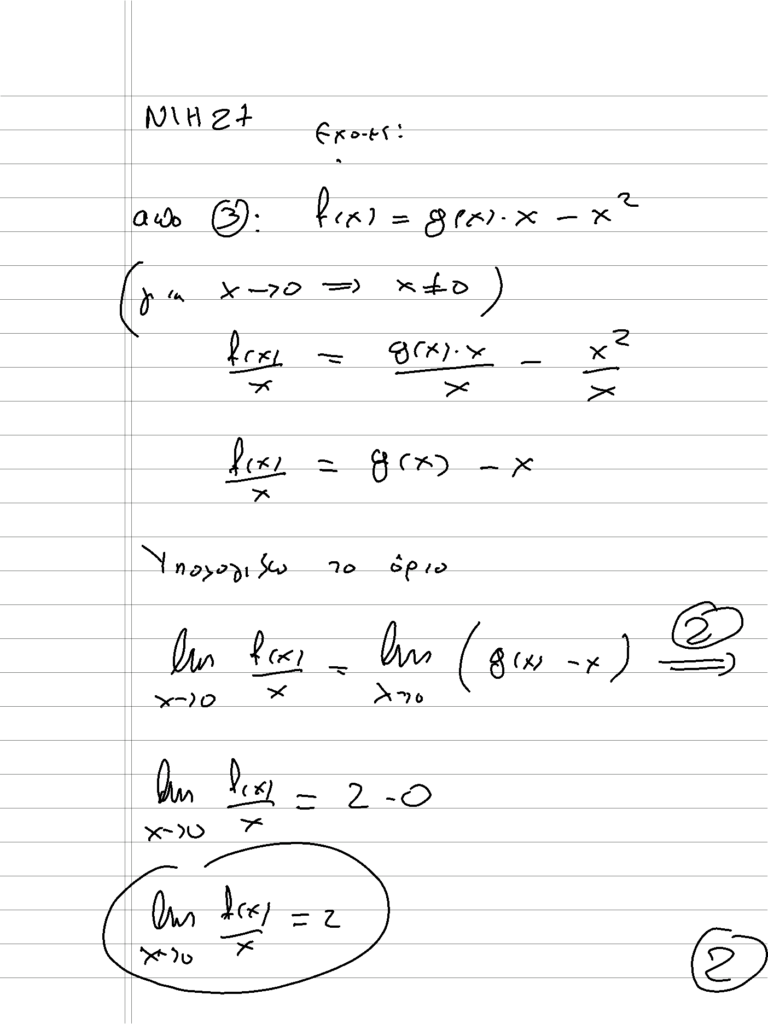 N1H27 Έχουμε:
από ③: f(x) = g(x)·x − x²
(για x→0 ⇒ x≠0)
f(x)/x = g(x)·x/x − x²/x
f(x)/x = g(x) − x
Υπολογίζω το όριο
lim x→0 f(x)/x = lim x→0 (g(x) − x) ②⟹
lim x→0 f(x)/x = 2 − 0
lim x→0 f(x)/x = 2
②